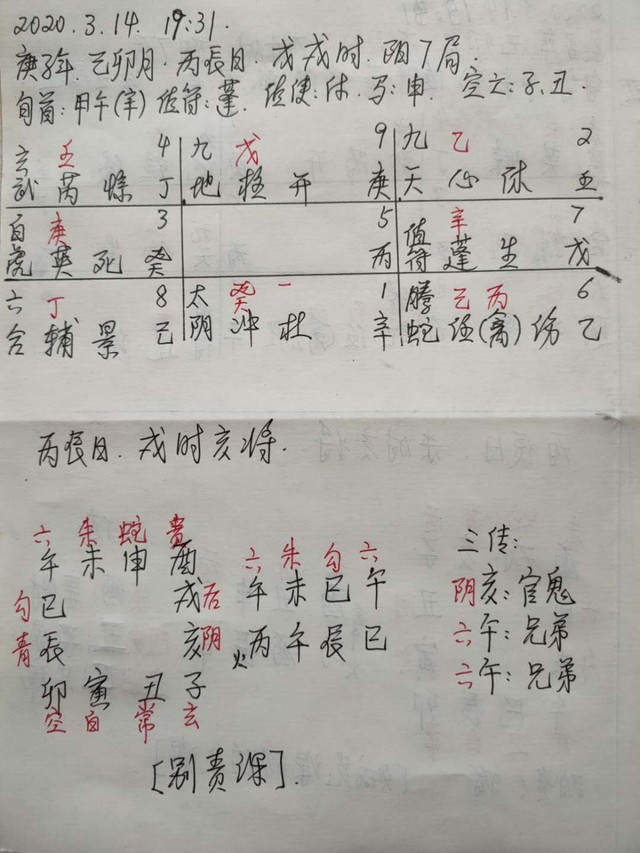 2020.3.14. 19:31.
庚子年. 己卯月. 丙辰日. 戊戌时. 阴7局.
旬首:甲午(辛) 值符:蓬. 值使:休. 马:申. 空亡:子.丑.
玄 壬 4 九 戊 9 九 乙 2
武 芮 惊 丁 地 柱 开 庚 天 心 休 壬
白 庚 3 5 值 辛 7
虎 英 死 癸 丙 符 蓬 生 戊
六 丁 8 太 癸 一 1 腾 己 丙 6
合 辅 景 己 阴 冲 杜 辛 蛇 任(禽) 伤 乙
丙辰日. 戌时亥将.
六 朱 蛇 贵
午 未 申 酉 六 朱 勾 六 三传:
勾 巳 戌 后 午 未 巳 午 阴亥:官鬼
青 辰 亥 阴 火 丙 午 辰 巳 六午:兄弟
卯 寅 丑 子 六午:兄弟
空 白 常 玄
[别责课].